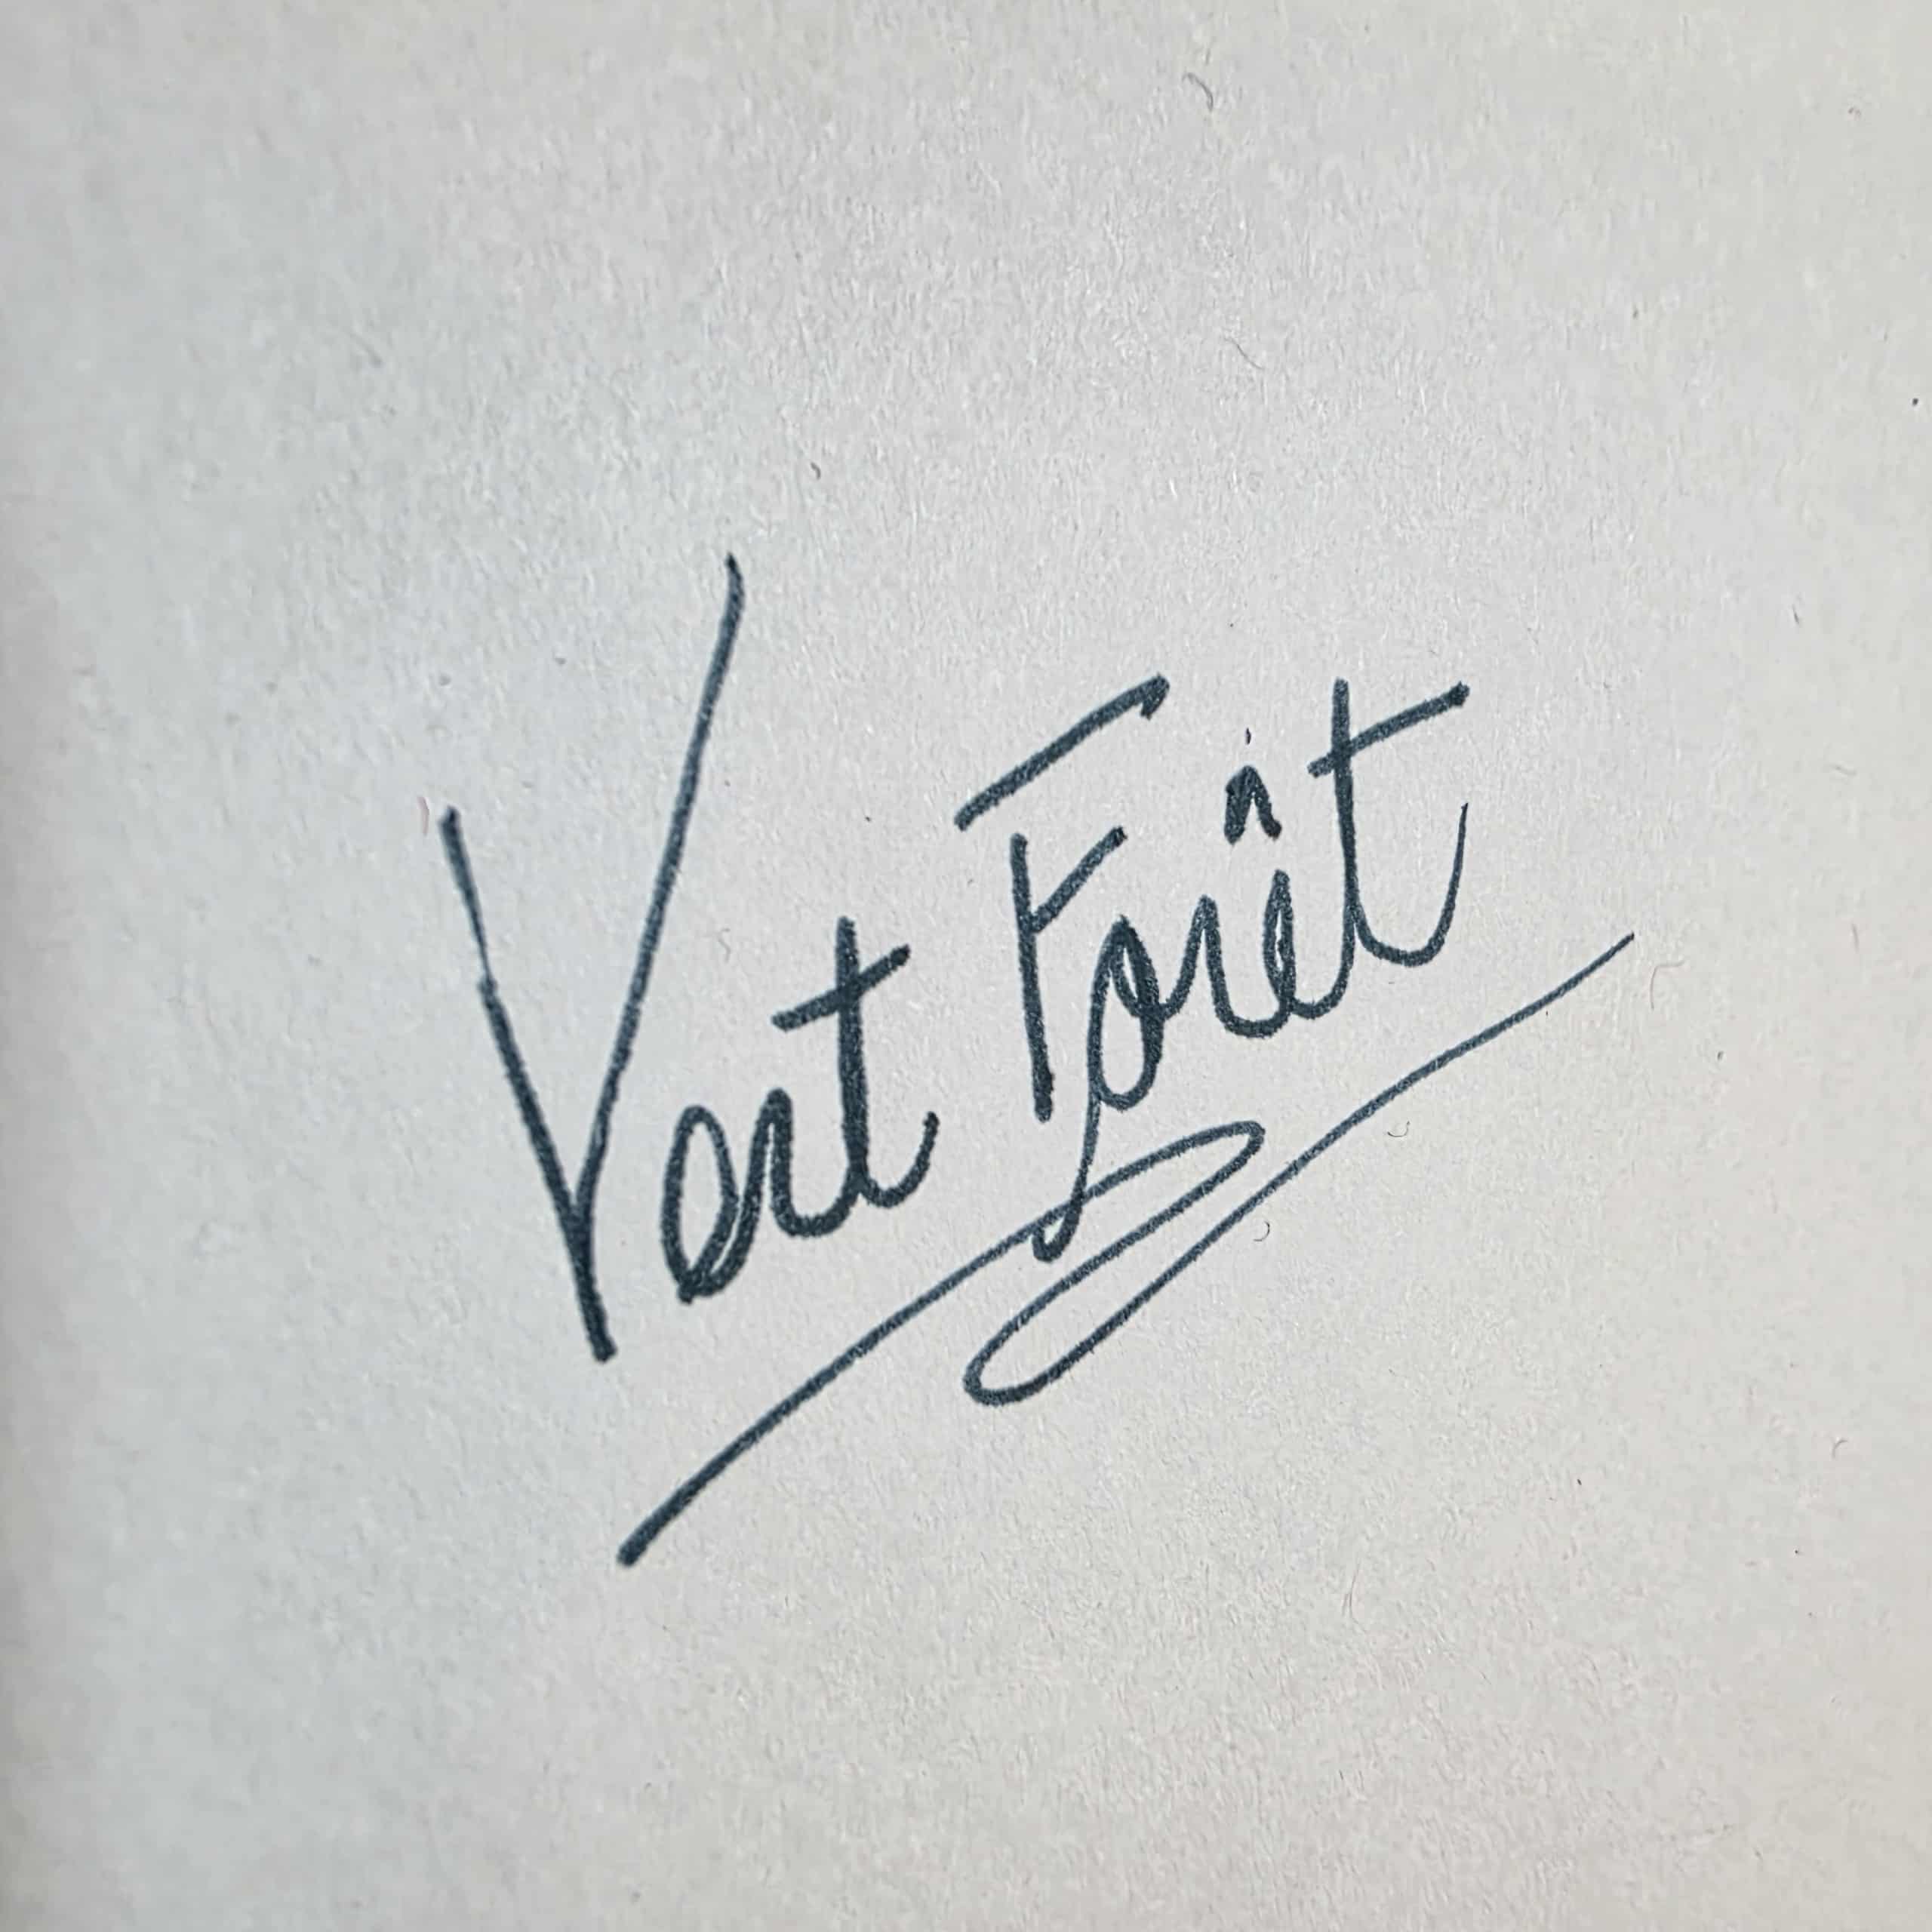 Vert Forêt